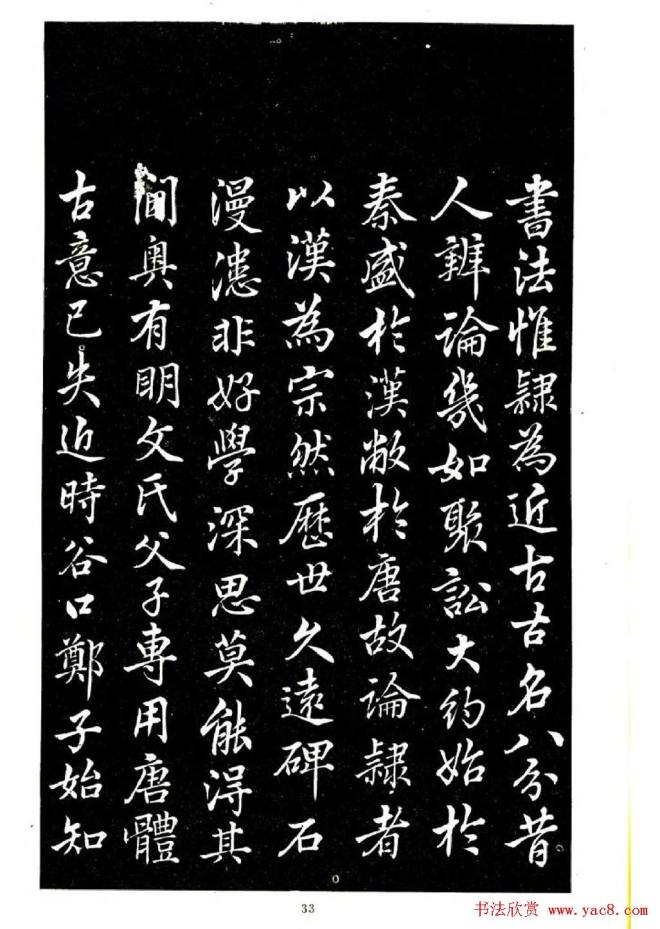 書法惟隷為近古古名八分昔
人辨論幾如聚訟大約始於
秦盛於漢敝於唐故論隷者
以漢為宗然歷世久遠碑石
漫漶非好學深思莫能得其
閫奧有明文氏父子專用唐體
古意已失近時谷口鄭子始知
33
书法欣赏 www.yac8.com